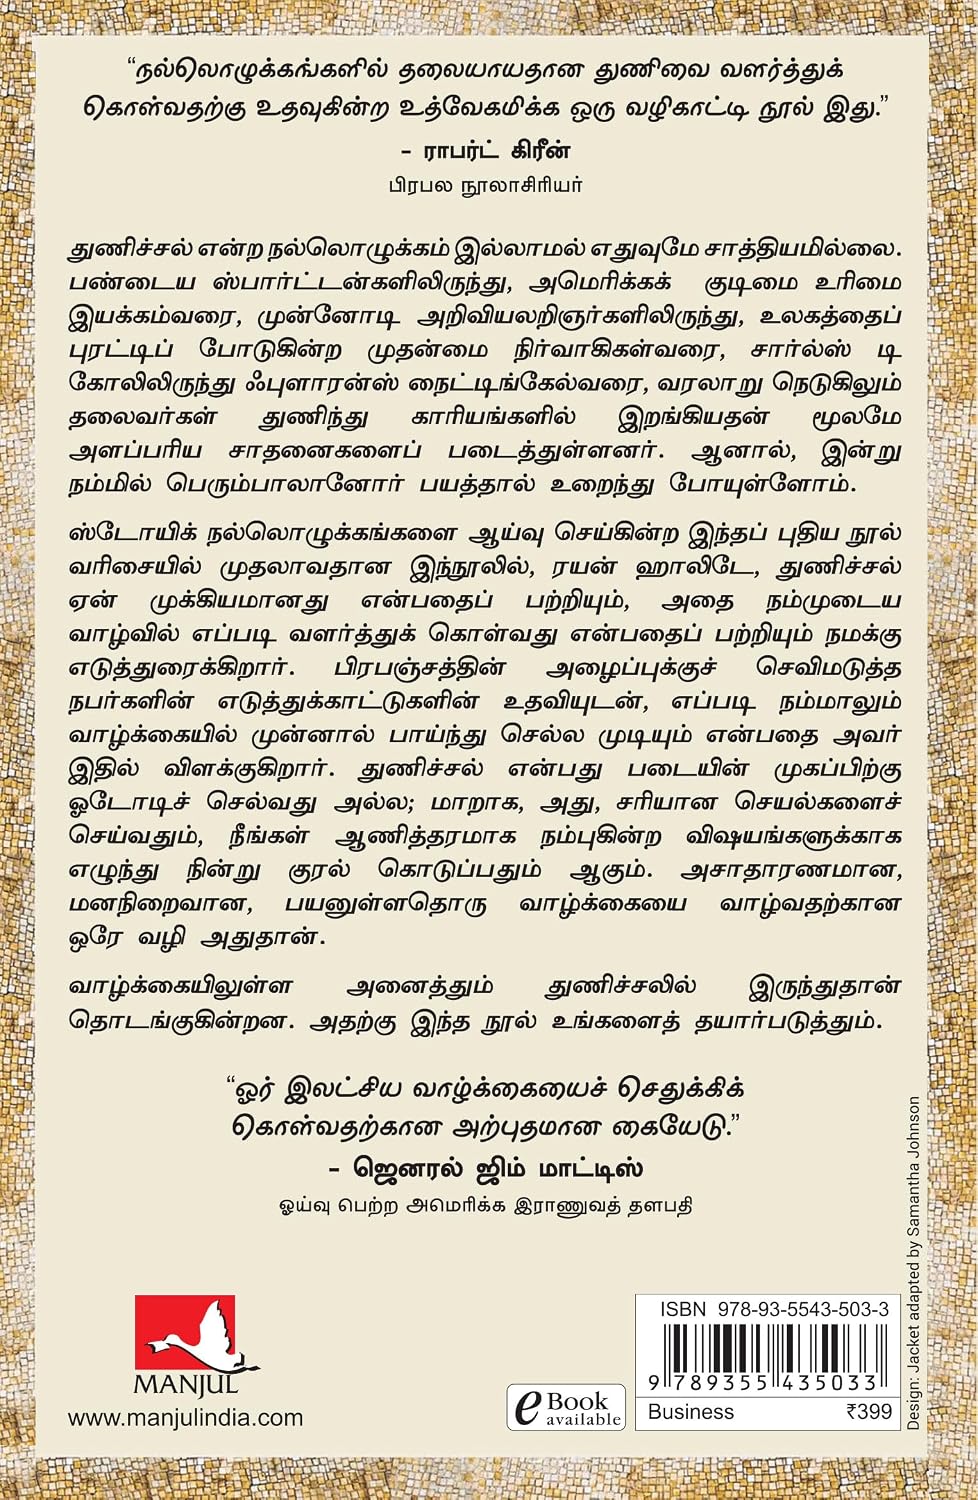 “நல்லொழுக்கங்களில் தலையாயதான துணிவை வளர்த்துக்
கொள்வதற்கு உதவுகின்ற உத்வேகமிக்க ஒரு வழிகாட்டி நூல் இது.”
– ராபர்ட் கிரீன்
பிரபல நூலாசிரியர்
துணிச்சல் என்ற நல்லொழுக்கம் இல்லாமல் எதுவுமே சாத்தியமில்லை.
பண்டைய ஸ்பார்ட்டன்களிலிருந்து, அமெரிக்கக் குடிமை உரிமை
இயக்கம்வரை, முன்னோடி அறிவியலறிஞர்களிலிருந்து, உலகத்தைப்
புரட்டிப் போடுகின்ற முதன்மை நிர்வாகிகள்வரை, சார்ல்ஸ் டி
கோலிலிருந்து ஃபுளாரன்ஸ் நைட்டிங்கேல்வரை, வரலாறு நெடுகிலும்
தலைவர்கள் துணிந்து காரியங்களில் இறங்கியதன் மூலமே
அளப்பரிய சாதனைகளைப் படைத்துள்ளனர். ஆனால், இன்று
நம்மில் பெரும்பாலானோர் பயத்தால் உறைந்து போயுள்ளோம்.
ஸ்டோயிக் நல்லொழுக்கங்களை ஆய்வு செய்கின்ற இந்தப் புதிய நூல்
வரிசையில் முதலாவதான இந்நூலில், ரயன் ஹாலிடே, துணிச்சல்
ஏன் முக்கியமானது என்பதைப் பற்றியும், அதை நம்முடைய
வாழ்வில் எப்படி வளர்த்துக் கொள்வது என்பதைப் பற்றியும் நமக்கு
எடுத்துரைக்கிறார். பிரபஞ்சத்தின் அழைப்புக்குச் செவிமடுத்த
நபர்களின் எடுத்துக்காட்டுகளின் உதவியுடன், எப்படி நம்மாலும்
வாழ்க்கையில் முன்னால் பாய்ந்து செல்ல முடியும் என்பதை அவர்
இதில் விளக்குகிறார். துணிச்சல் என்பது படையின் முகப்பிற்கு
ஓடோடிச் செல்வது அல்ல; மாறாக, அது, சரியான செயல்களைச்
செய்வதும், நீங்கள் ஆணித்தரமாக நம்புகின்ற விஷயங்களுக்காக
எழுந்து நின்று குரல் கொடுப்பதும் ஆகும். அசாதாரணமான,
மனநிறைவான, பயனுள்ளதொரு வாழ்க்கையை வாழ்வதற்கான
ஒரே வழி அதுதான்.
வாழ்க்கையிலுள்ள அனைத்தும் துணிச்சலில் இருந்துதான்
தொடங்குகின்றன. அதற்கு இந்த நூல் உங்களைத் தயார்படுத்தும்.
“ஓர் இலட்சிய வாழ்க்கையைச் செதுக்கிக்
கொள்வதற்கான அற்புதமான கையேடு.”
– ஜெனரல் ஜிம் மாட்டிஸ்
ஓய்வு பெற்ற அமெரிக்க இராணுவத் தளபதி
MANJUL
www.manjulindia.com
e Book
available
ISBN 978-93-5543-503-3
9 789355 435033
Business ₹399
Design: Jacket adapted by Samantha Johnson